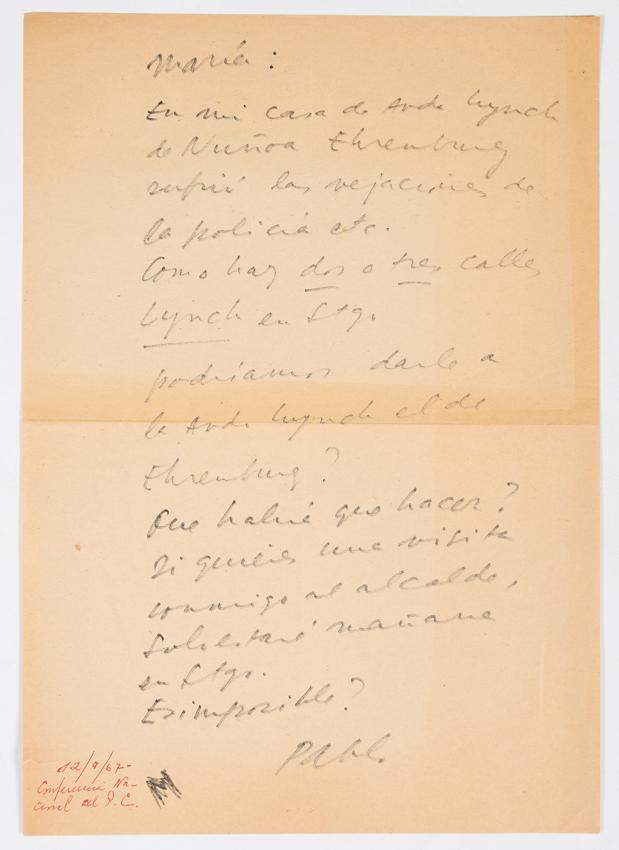 María:
En mi casa de Avda Lynch
de Nuñoa Ehrenburg
sufrió las vejaciones de
la policia etc.
Como hay dos o tres calles
Lynch en Stgo
podríamos darle a
la Avda Lynch el de
Ehrenburg?
Que habrá que hacer?
Si quieres una visita
conmigo al alcalde,
Solo estaré mañana
en Stgo.
Es imposible?
Pablo
12/9/67-
Conferencia Na-
cional del P.C.